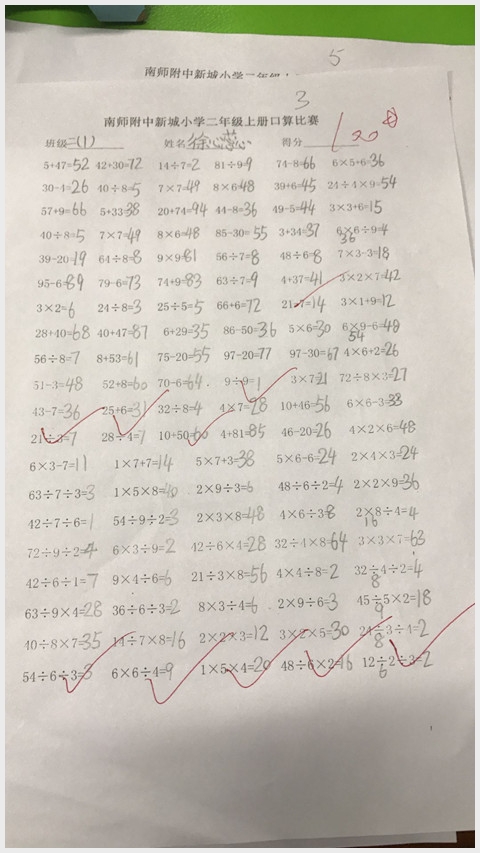 5
南师附中新城小学二年级
3
南师附中新城小学二年级上册口算比赛
班级二(1) 姓名徐心蕊 得分 120
5+47=52 42+30=72 14÷7=2 81÷9=9 74-8=66 6×5+6=36
30-4=26 40÷8=5 7×7=49 8×6=48 39+6=45 24÷4×9=54
57+9=66 5+33=38 20+74=94 44-8=36 49-5=44 3×3+6=15
40÷8=5 7×7=49 8×6=48 85-30=55 3+34=37 6×6÷9=4
36
39-20=19 64÷8=8 9×9=81 56÷7=8 48÷6=8 7×3-3=18
95-6=89 79-6=73 74+9=83 63÷7=9 4+37=41 3×2×7=42
3×2=6 24÷8=3 25÷5=5 66+6=72 21-7=14 3×1+9=12
28+40=68 40+47=87 6+29=35 86-50=36 5×6=30 6×9-6=48
54
56÷8=7 8+53=61 75-20=55 97-20=77 97-30=67 4×6+2=26
51-3=48 52+8=60 70-6=64 9÷9=1 3×7=21 72÷8×3=27
43-7=36 25+6=31 32÷8=4 4×7=28 10+46=56 6×6-3=33
21÷3=7 28÷4=7 10+50=60 4+81=85 46-20=26 4×2×6=48
6×3-7=11 1×7+7=14 5×7+3=38 5×6-6=24 2×4×3=24
63÷7÷3=3 1×5×8=40 2×9÷3=6 48÷6÷2=4 2×2×9=36
42÷7÷6=1 54÷9÷2=3 2×3×8=48 4×6÷3=8 2×8÷4=4
16
72÷9÷2=4 6×3÷9=2 42÷6×4=28 32÷4×8=64 3×3×7=63
42÷6÷1=7 9×4÷6=6 21÷3×8=56 4×4÷8=2 32÷4÷2=4
8
63÷9×4=28 36÷6÷3=2 8×3÷4=6 2×9÷6=3 45÷5×2=18
9
40÷8×7=35 14÷7×8=16 2×2×3=12 3×2×5=30 24÷3÷4=2
8
54÷6÷3=3 6×6÷4=9 1×5×4=20 48÷6×2=16 12÷2÷3=2
6